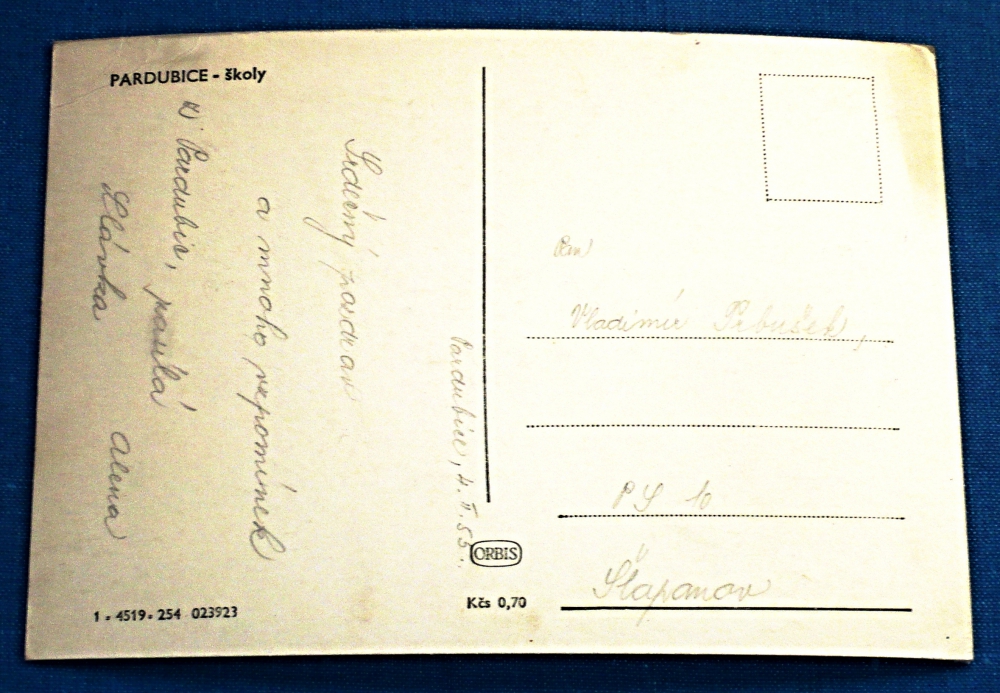 PARDUBICE - školy
Pardubice, 4. II. 55.
Srdečný pozdrav
a mnoho vzpomínek
z Pardubic,
Slávka Alena
Pan
Vladimír
PS 10
Šlapanov
ORBIS
Kčs 0,70
1 - 4519 - 254 023923